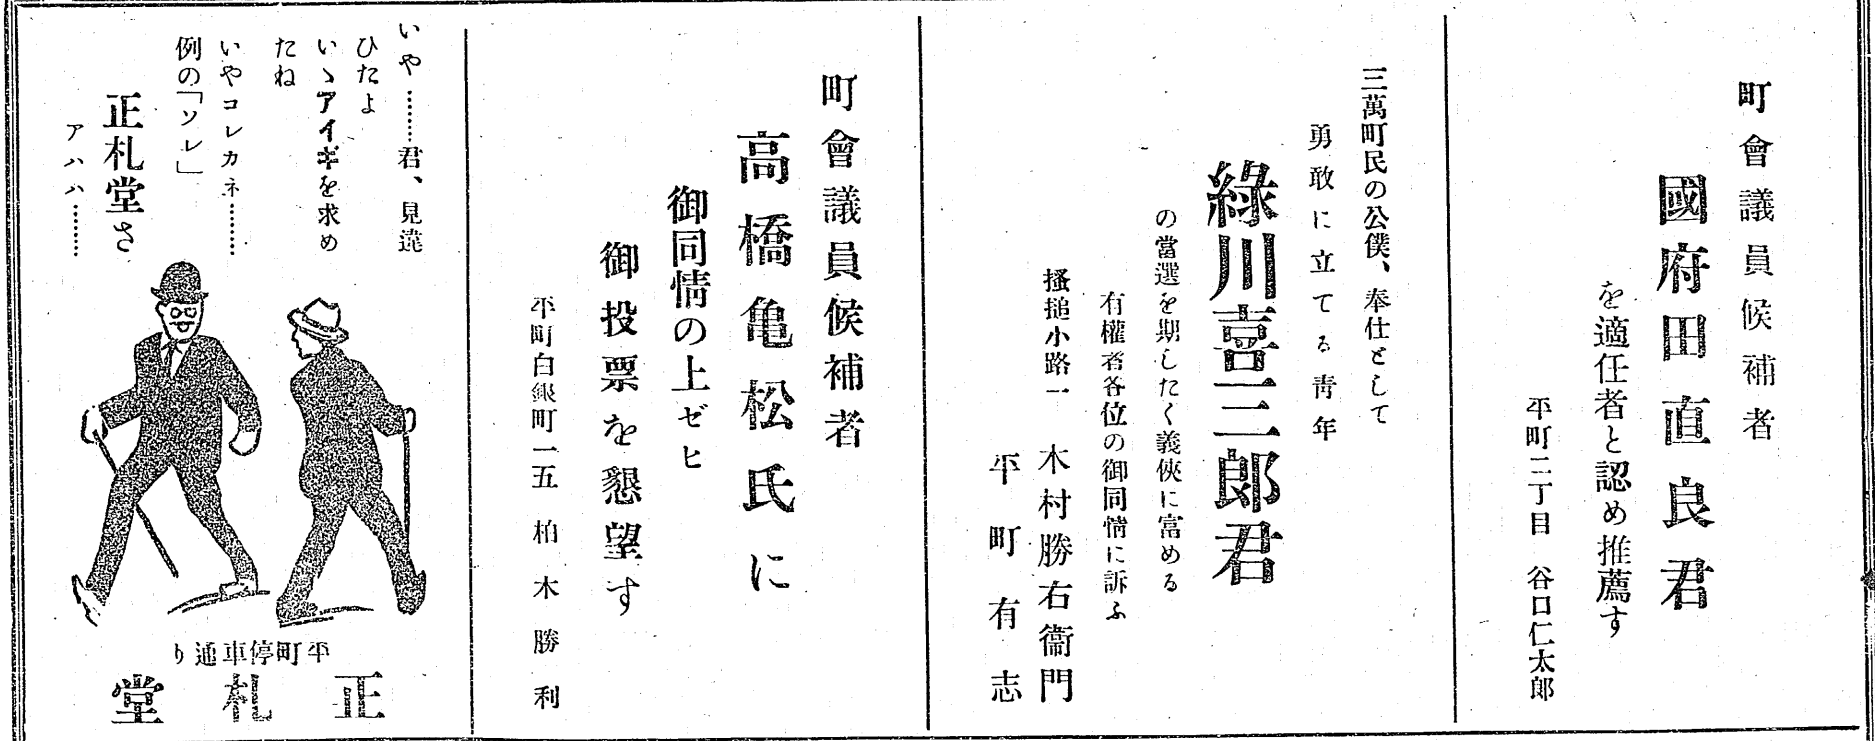 町會議員候補者
國府田直良君
を適任者と認め推薦す
平町二丁目　谷口仁太郎
三萬町民の公僕、奉仕として
勇敢に立てる靑年
綠川喜三郎君
の當選を期したく義俠に富める
有權者各位の御同情に訴ふ
搔搥小路一　木村勝右衞門
平町有志
町會議員候補者
高橋亀松氏に
御同情の上ゼヒ
御投票を懇望す
平町白銀町一五　柏木勝利
いや………君、見違
ひたよ
いゝアイギを求め
たね
いやコレカネ………
例の「ソレ」
正札堂さ
アハハ………
平町停車通り
正札堂